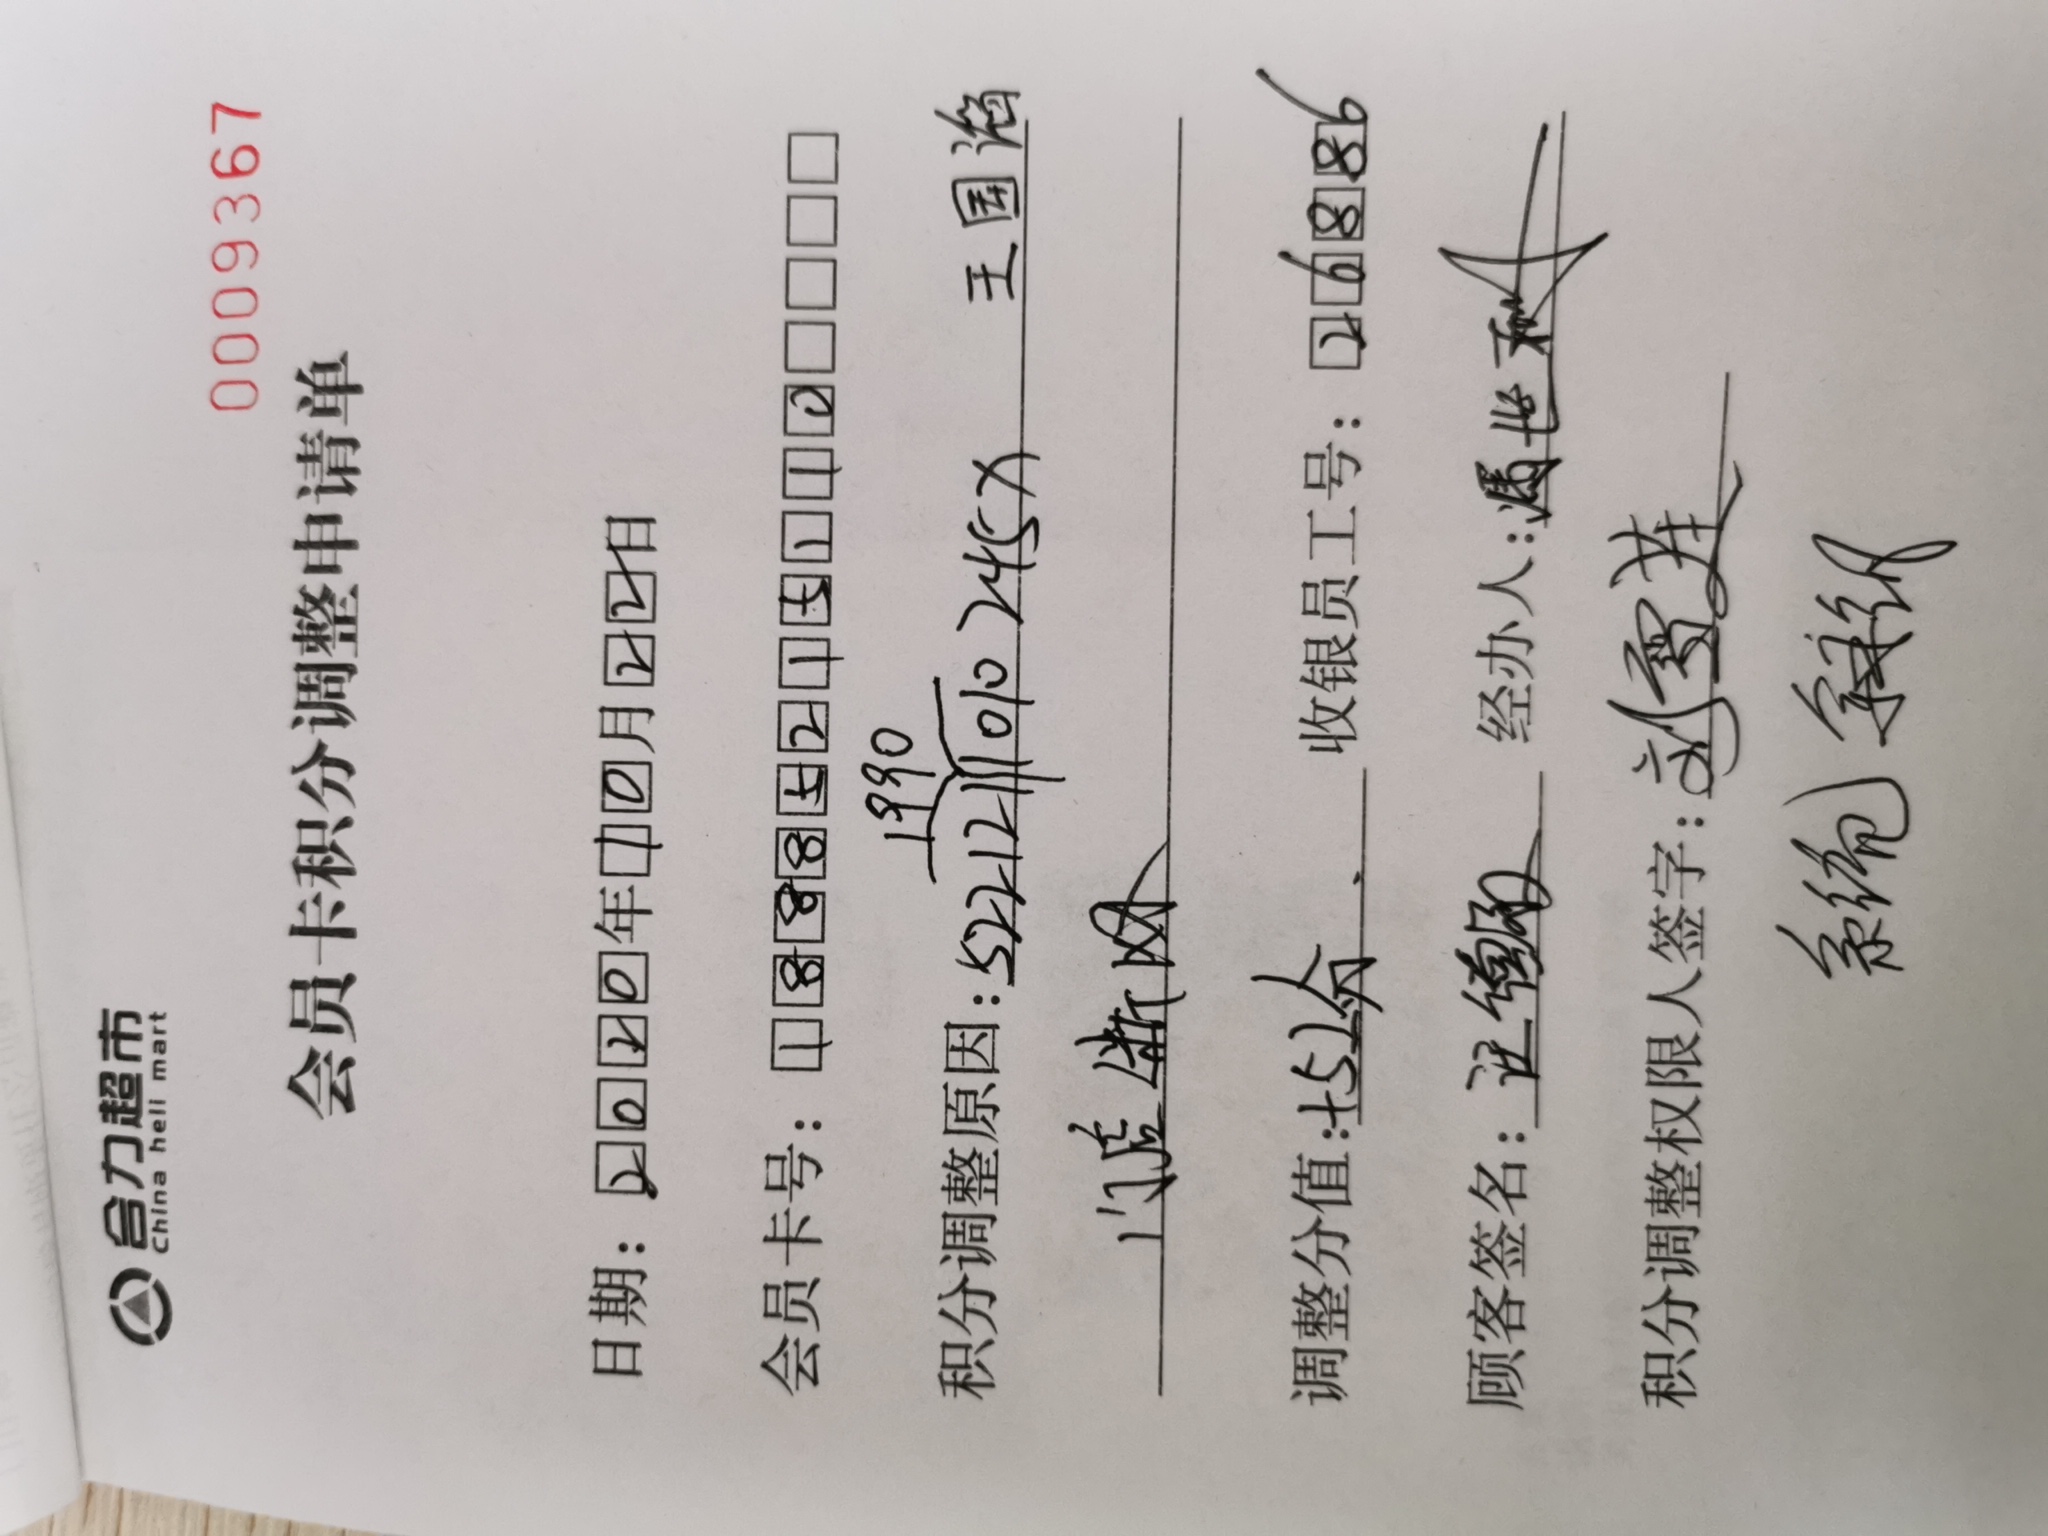 合力超市
China heli mart
0009367
会员卡积分调整申请单
日期：2020年10月22日
会员卡号：18885215110
1990
积分调整原因：522121 010 245X 王国滔
门店断网
调整分值：+51分 收银员工号：26886
顾客签名： 经办人：
积分调整权限人签字：